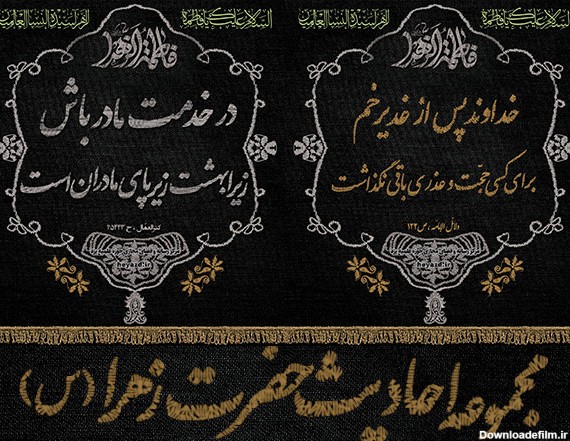 السلام علیک یا فاطمة الزهرا
فاطمة الزهرا
خداوند پس از غدیر خم
برای کسی حجّت و عذری باقی نگذاشت
دلائل الامامه ، ص ۱۲۲
السلام علیک یا فاطمة
فاطمة الزهرا
در خدمت مادر باش
زیرا بهشت زیر پای مادران است
کنزالعمّال ، ح ۴۵۴۴۳
مجموعه احادیث حضرت زهرا (س)
Downloadefilm.ir